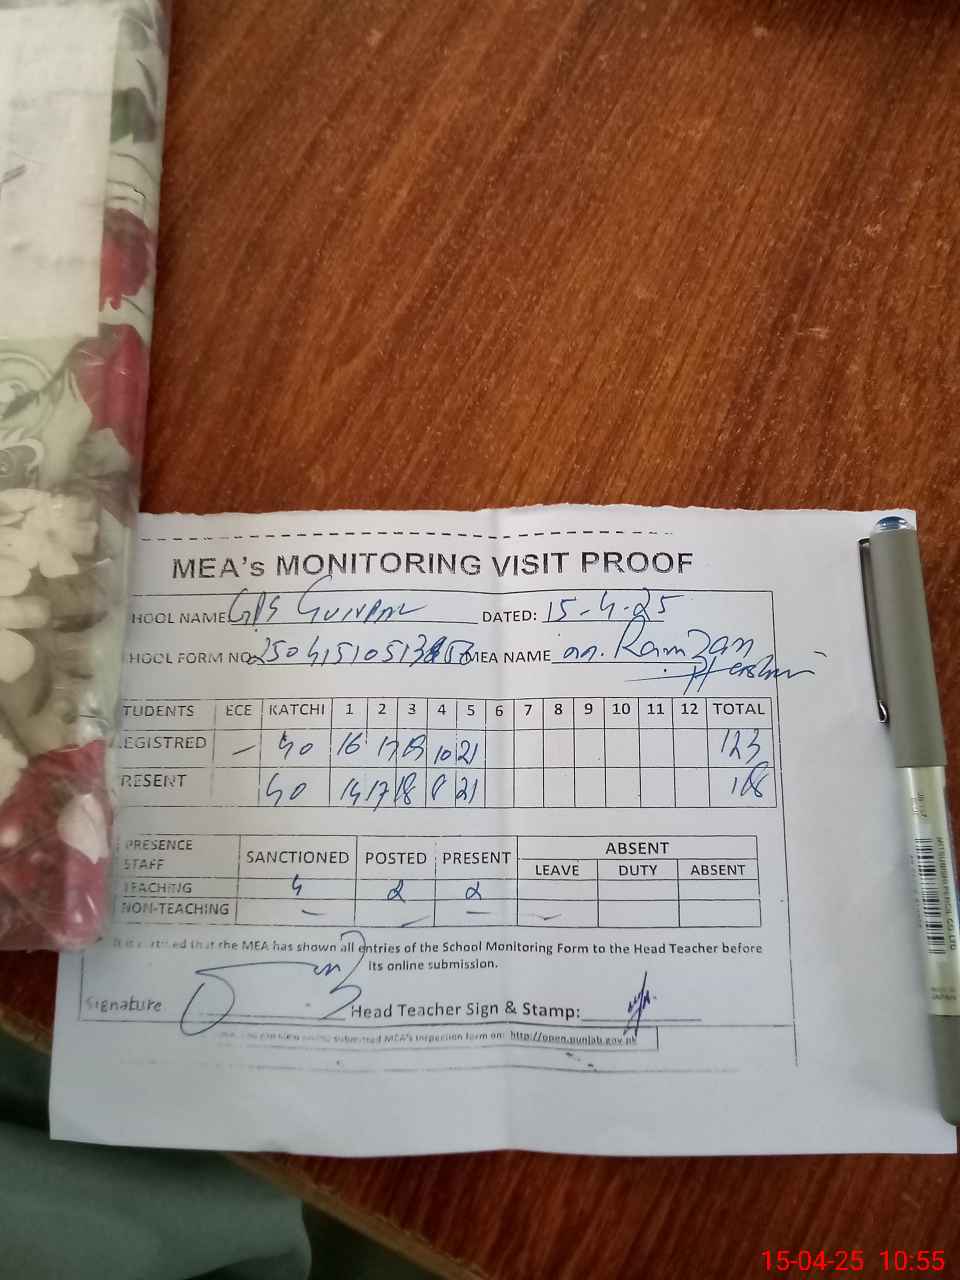 MEA's MONITORING VISIT PROOF
HOOL NAME GPS DATED: 15-4-25
HOOL FORM NO MEA NAME m. Ramzan
TUDENTS ECE KATCHI 1 2 3 4 5 6 7 8 9 10 11 12 TOTAL
EGISTRED — 40 16 17 19 10 21 123
RESENT 40 14 17 18 8 21 118
PRESENCE STAFF SANCTIONED POSTED PRESENT ABSENT
LEAVE DUTY ABSENT
TEACHING 4 2 2
NON-TEACHING — — — —
It is certified that the MEA has shown all entries of the School Monitoring Form to the Head Teacher before
its online submission.
Signature Head Teacher Sign & Stamp:
submitted MEA's inspection form on: http://open.punjab.gov.pk
15-04-25 10:55